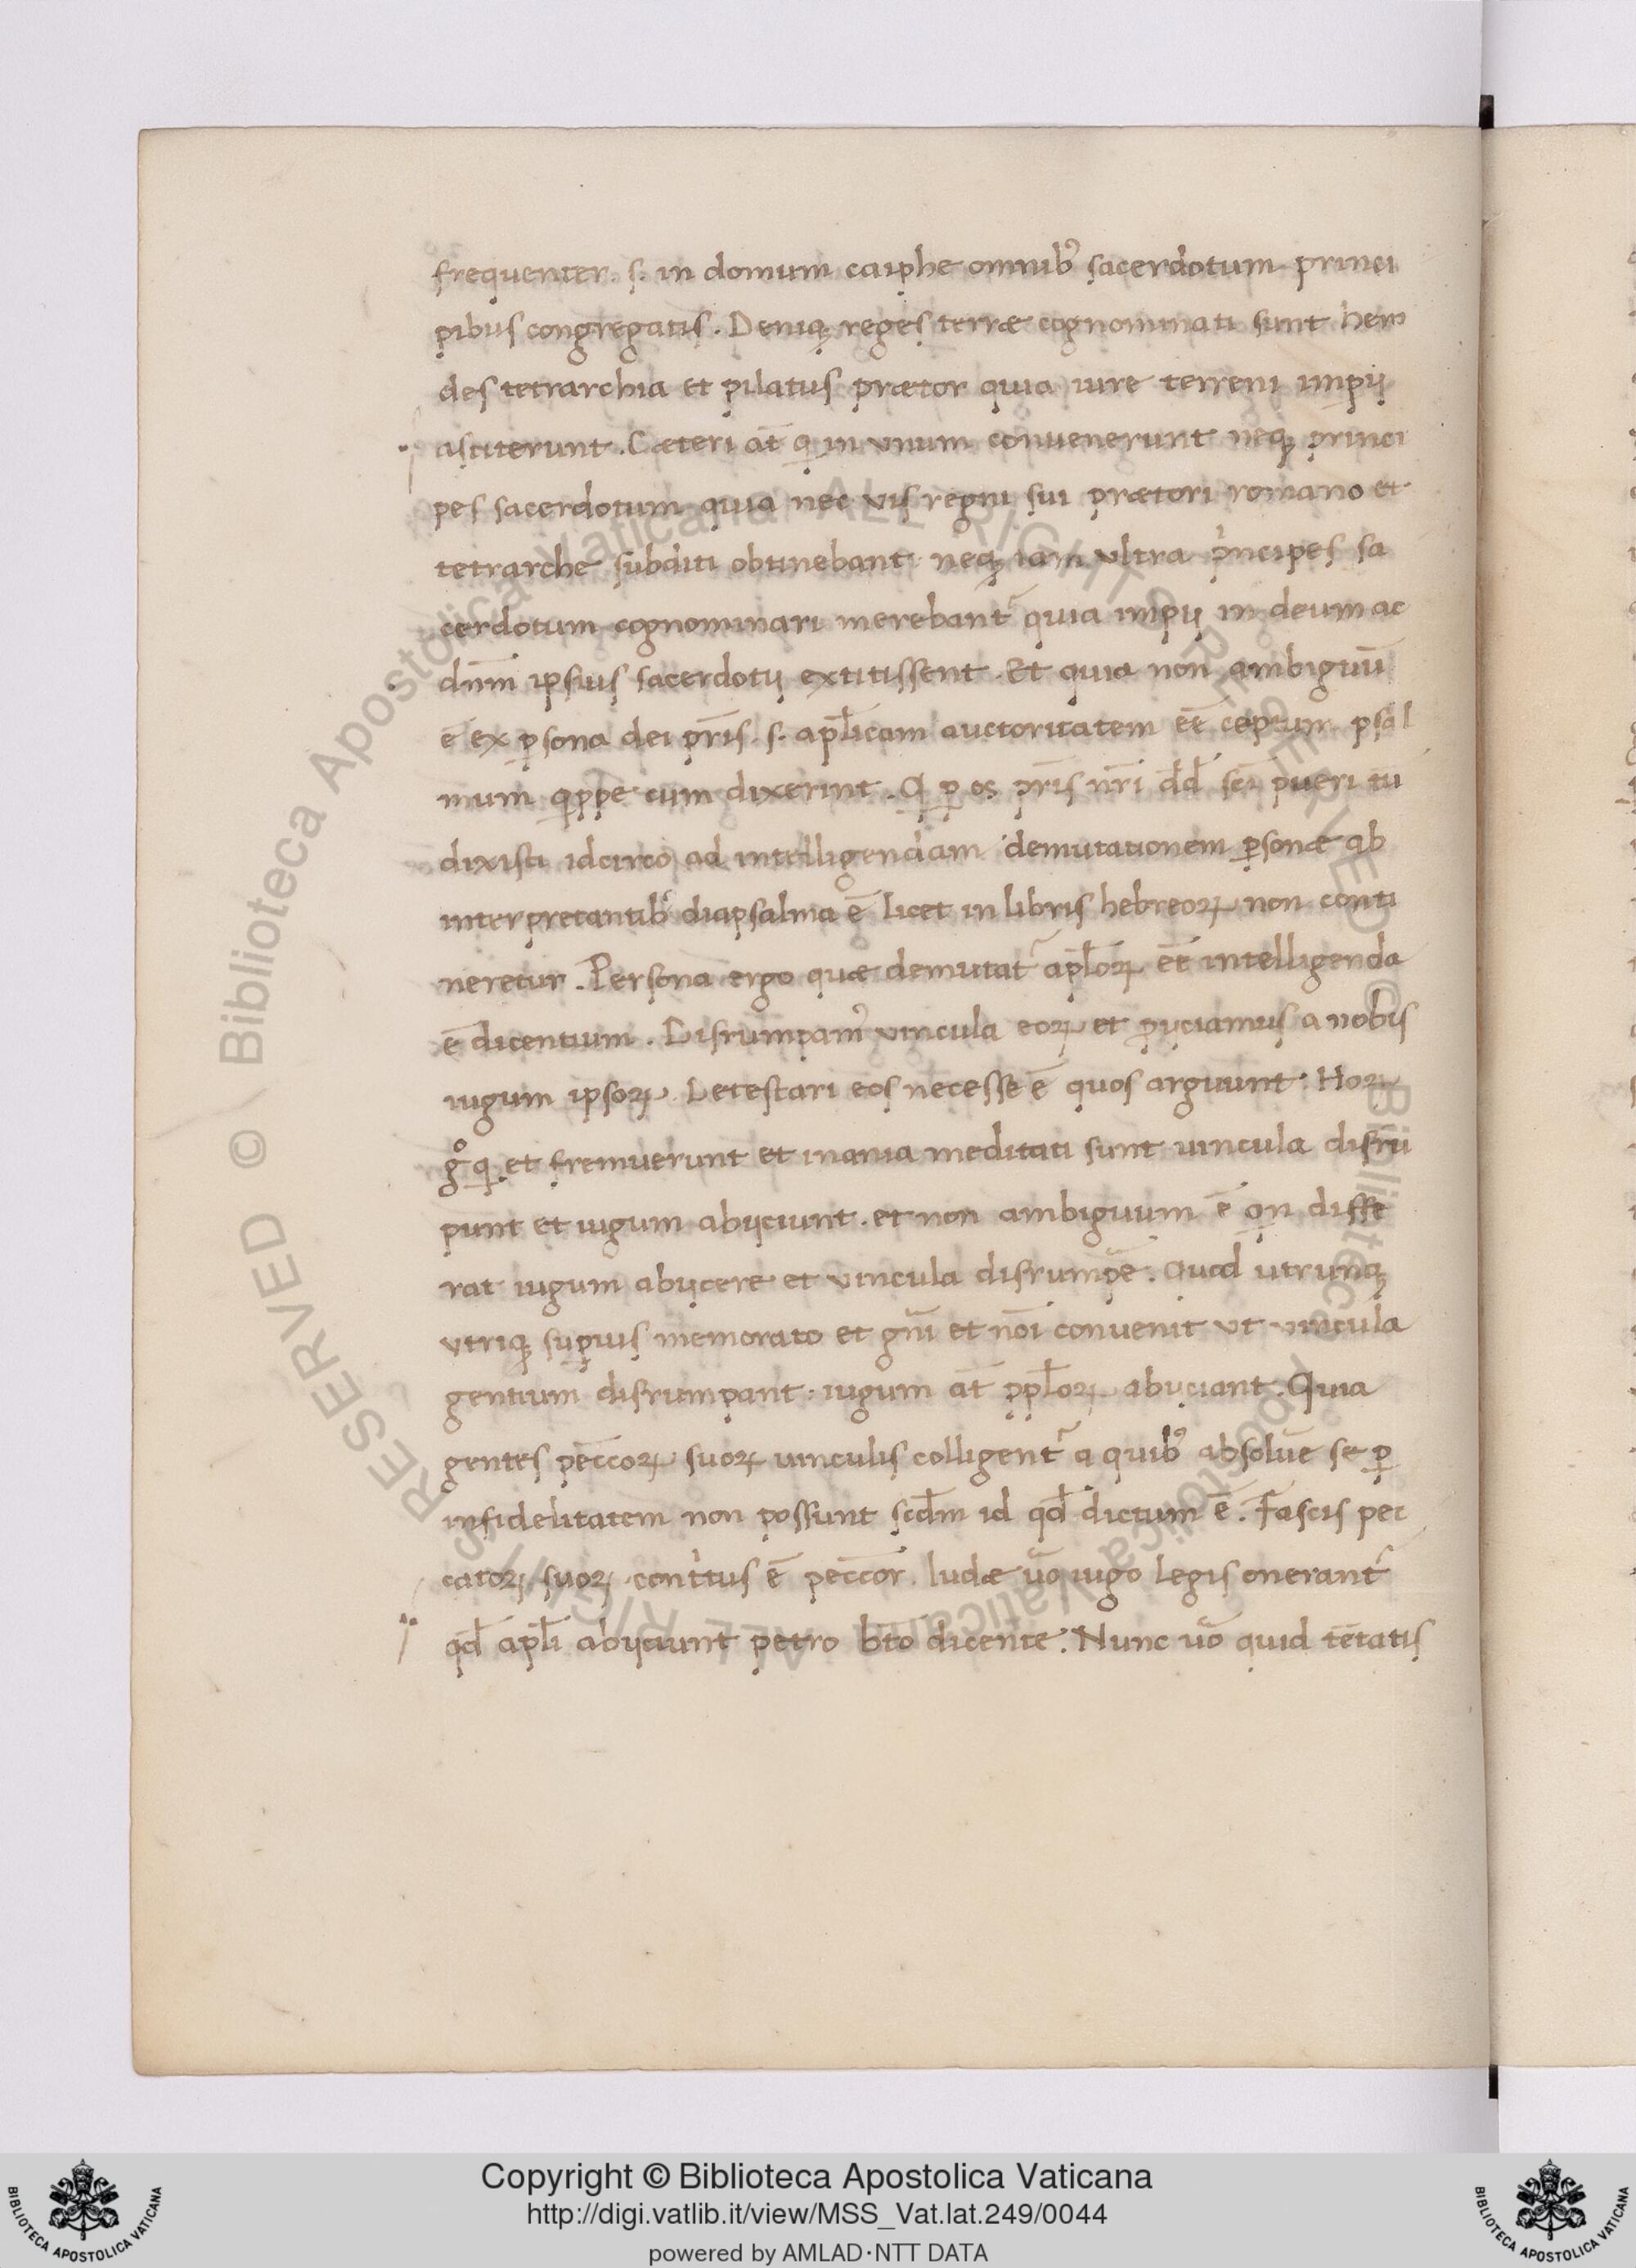 frequenter. s. in domum caiphe omnib9 sacerdotum princi
pibus congregatis. Deniqꝫ reges terræ cognominati sunt hero
des tetrarchia et pilatus prætor quia iure terreni impij
astiterunt. Cæteri at̄ q in vnum convenerunt neqꝫ princi
pes sacerdotum quia nec vis regni sui prætori romano et
tetrarche subditi obtinebant neqꝫ iam ultra pͥncipes sa
cerdotum cognominari merebant᷑ quia impij in deum ac
dn̄m ipsius sacerdotij extitissent. Et quia non ambiguū
ē ex ꝑsona dei pr̄is. s. apl̄icam auctoritatem eē ceptum psal
mum qͥppe cum dixerint. Q ꝑ os pr̄is nr̄i dd̄ sc̄i pueri tu
dixisti idcirco ad intelligendam demutationem ꝑsonæ ab
interpretantib9 diapsalma ē licet in libris hebreoꝝ non conti
neretur. Persona ergo quæ demutat᷑ apl̄oꝝ eē intelligenda
ē dicentium. Disrumpam9 vincula eoꝝ et ꝓijciamus a nobis
iugum ipsoꝝ. Detestari eos necesse ē quos arguunt. Hoꝝ
gͦ q et fremuerunt et inania meditati sunt vincula disru
punt et iugum abijciunt. et non ambiguum ē qn diffe
rat iugum abijcere et vincula disrumpe᷑. Quod utrunqꝫ
vtriqꝫ supius memorato et gn̄i et nōi convenit vt vincula
gentium disrumpant. iugum at̄ ppl̄oꝝ abijciant. Quia
gentes pecc̄oꝝ suoꝝ vinculis colligent᷑ a quib9 absolue᷑ se ꝑ
infidelitatem non possunt scd̄m id qd̄ dictum ē. Fascis pec
catoꝝ suoꝝ contͥtus ē pecc̄or. Iudæ ūo iugo legis onerant᷑
qd̄ apl̄i abijciunt petro bt̄o dicente. Nunc ūo quid tētatis
Copyright © Biblioteca Apostolica Vaticana
http://digi.vatlib.it/view/MSS_Vat.lat.249/0044
powered by AMLAD·NTT DATA
BIBLIOTECA APOSTOLICA VATICANA
BIBLIOTECA APOSTOLICA VATICANA
© Biblioteca Apostolica Vaticana ALL RIGHTS RESERVED © Biblioteca Apostolica Vaticana ALL RIGHTS RESERVED